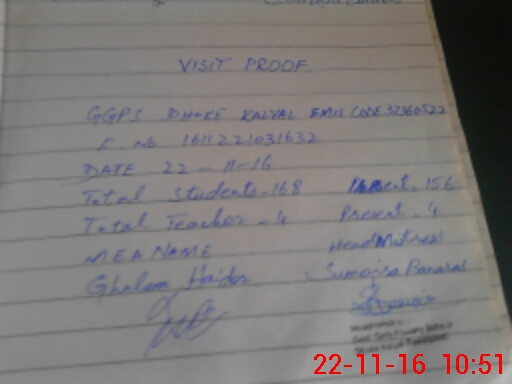 VISIT PROOF
GGPS DHOKE KALYAL EMIS CODE 37360522
F. No 1611221031632
DATE 22-11-16
Total Students-168 Present-156
Total Teacher-4 Present-4
MEA NAME HeadMistress
Ghulam Haider Sumaira
22-11-16 10:51